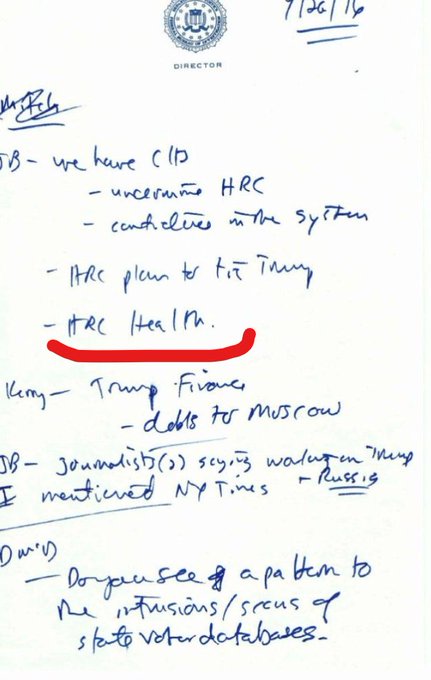 9/26/16
DIRECTOR
JB - we have CIA
- undermine HRC
- candidates in the system
- HRC plan to tie Trump
- HRC Health.
Kerry - Trump Finance
- debts to Moscow
JB - Journalist(s) saying working on Trump
+ Russia
I mentioned NY Times
- Do you see a pattern to
the intrusions/scans of
state voter databases.